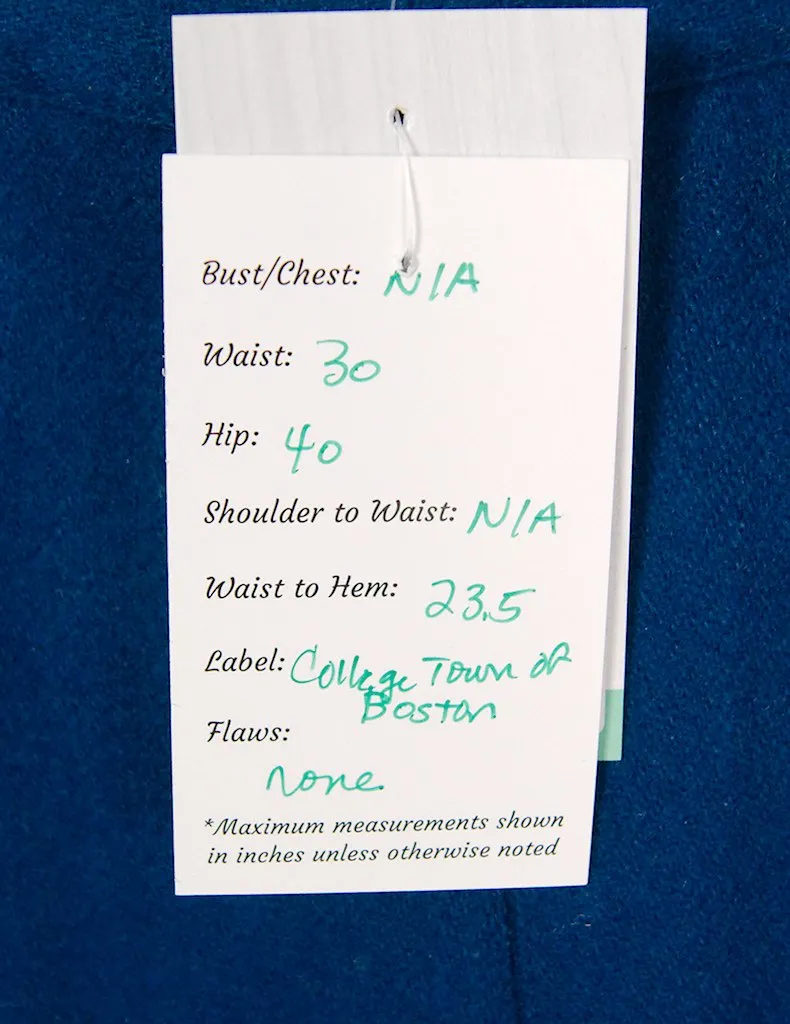 Bust/Chest: N/A
Waist: 30
Hip: 40
Shoulder to Waist: N/A
Waist to Hem: 23.5
Label: College Town of
Boston
Flaws:
none
*Maximum measurements shown
in inches unless otherwise noted